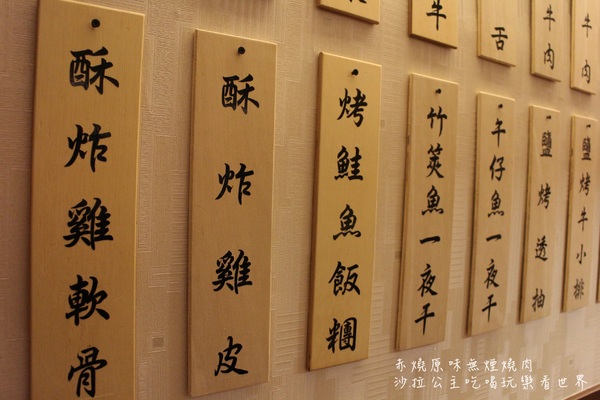 酥炸雞軟骨
酥炸雞皮
烤鮭魚飯糰
竹筴魚一夜干
午仔魚一夜干
鹽烤透抽
鹽烤牛小排
牛
舌
牛肉
牛肉
赤燒原味無煙燒肉
沙拉公主吃喝玩樂看世界